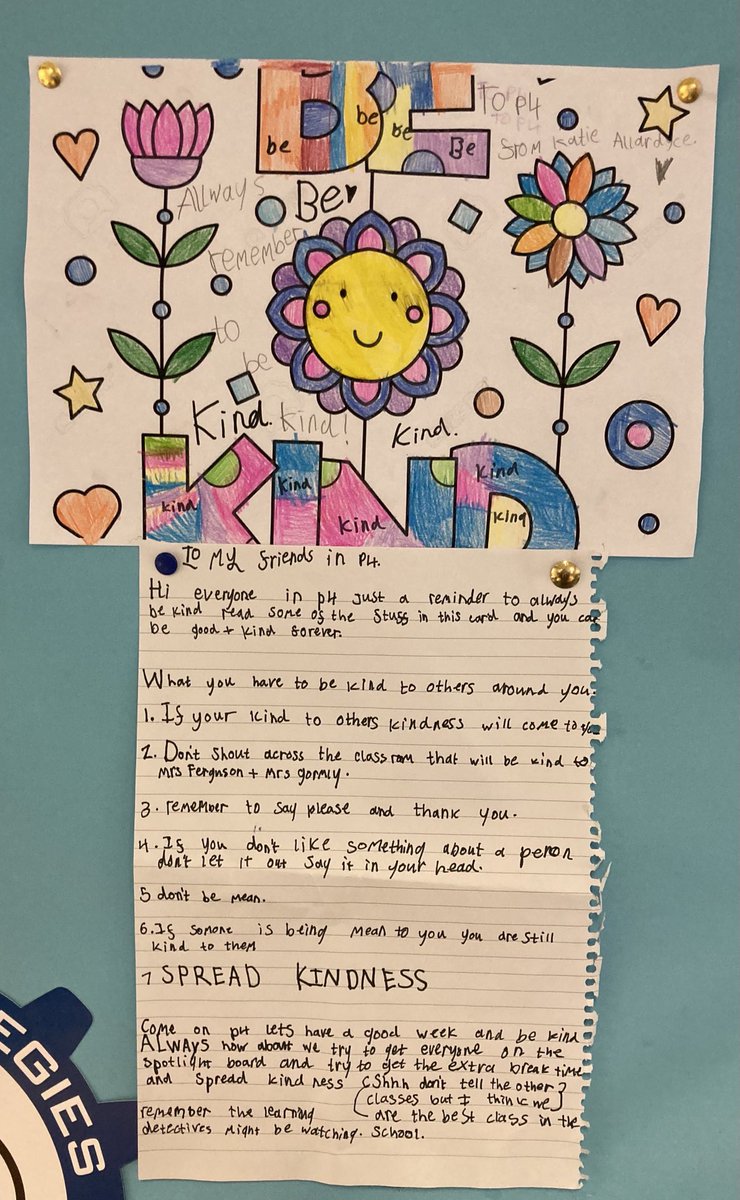 BE
be
be
be
Be
TO P4
TO P4
from Katie Allardyce.
Allways
remember
to
be
Be
Kind.
kind!
Kind.
KIND
kind
Kind
kind
Kind
King
To My friends in P4.
Hi everyone in P4 Just a reminder to always
be kind read some of the Stuff in this card and you can
be good + kind forever.
What you have to be kind to others around you.
1. If your kind to others kindness will come to you
2. Don't shout across the classroom that will be kind to
Mrs Ferguson + Mrs gormly.
3. remember to say please and thank you.
4. If you don't like something about a peron
don't let it out say it in your head.
5 don't be mean.
6. If somone is being mean to you you are still
kind to them
7 SPREAD KINDNESS
Come on p4 lets have a good week and be kind
ALWAYS how about we try to get everyone on the
spotlight board and try to get the extra break time
and spread kindness (Shhh don't tell the other
classes but I think we)
remember the learning (are the best class in the
detectives might be watching. School.
EGIES